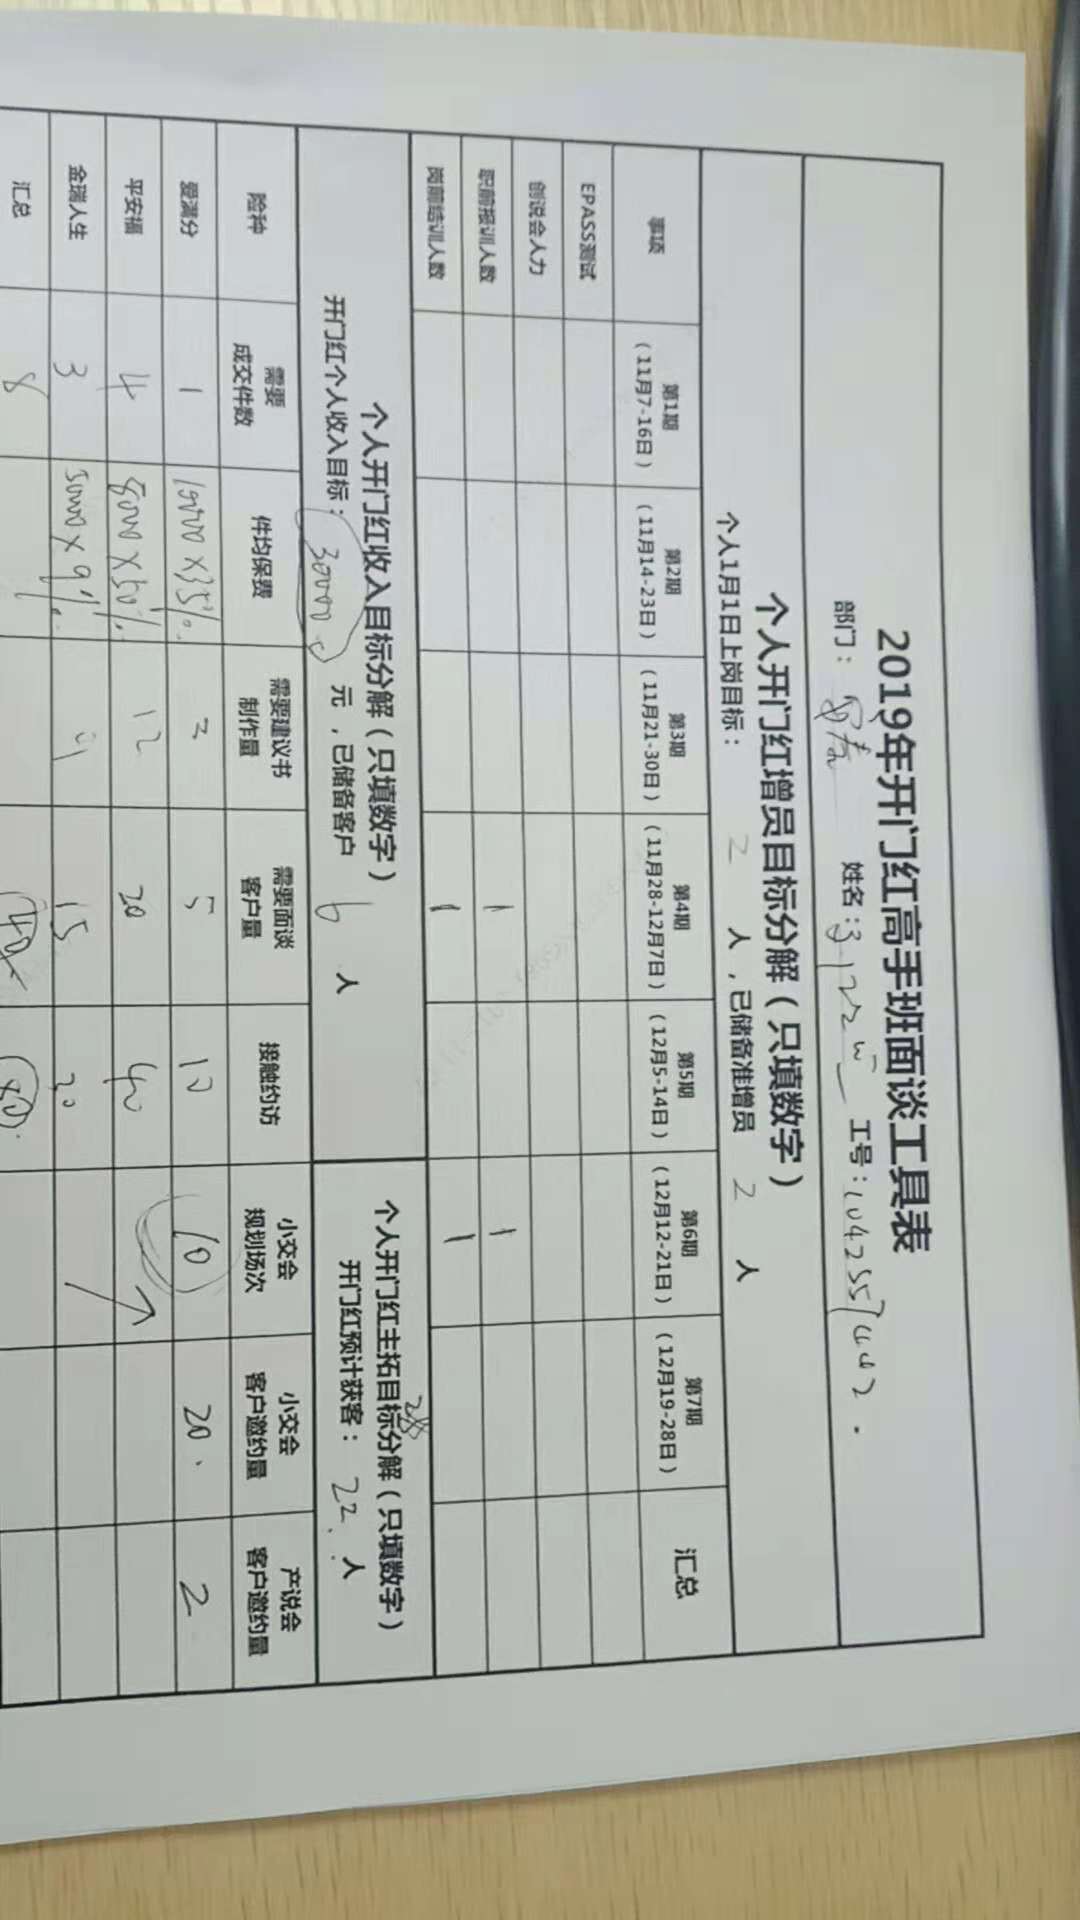 2019年开门红高手班面谈工具表
部门： 姓名： 工号：
个人开门红增员目标分解（只填数字）
个人1月1日上岗目标： 2 人，已储备准增员 2 人
事项 第1期（11月7-16日） 第2期（11月14-23日） 第3期（11月21-30日） 第4期（11月28-12月7日） 第5期（12月5-14日） 第6期（12月12-21日） 第7期（12月19-28日） 汇总
EPASS测试
创说会人力
职前报训人数 1 1
岗前结训人数 1 1
个人开门红收入目标分解（只填数字） 个人开门红主拓目标分解（只填数字）
开门红个人收入目标： 30000 元，已储备客户 6 人 开门红预计获客： 22 人
险种 需要成交件数 件均保费 需要建议书制作量 需要面谈客户量 接触约访 小交会规划场次 小交会客户邀约量 产说会客户邀约量
爱满分 1 10000×35% 3 5 10 10 20 2
平安福 4 8000×50% 12 20 40
金瑞人生 3 30000×9% 15 30
汇总 8 40 80